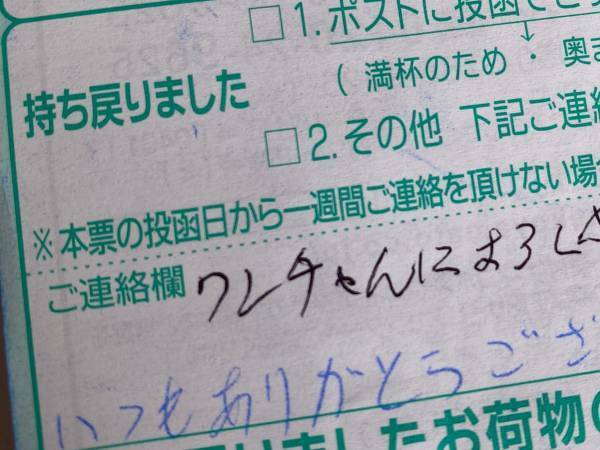 □1.ポストに投函でき
持ち戻りました
(満杯のため・奥ま
□2.その他 下記ご連絡
※本票の投函日から一週間ご連絡を頂けない場合
ご連絡欄 ワンチャんによろしく
いつもありがとうござ
りましたお荷物の